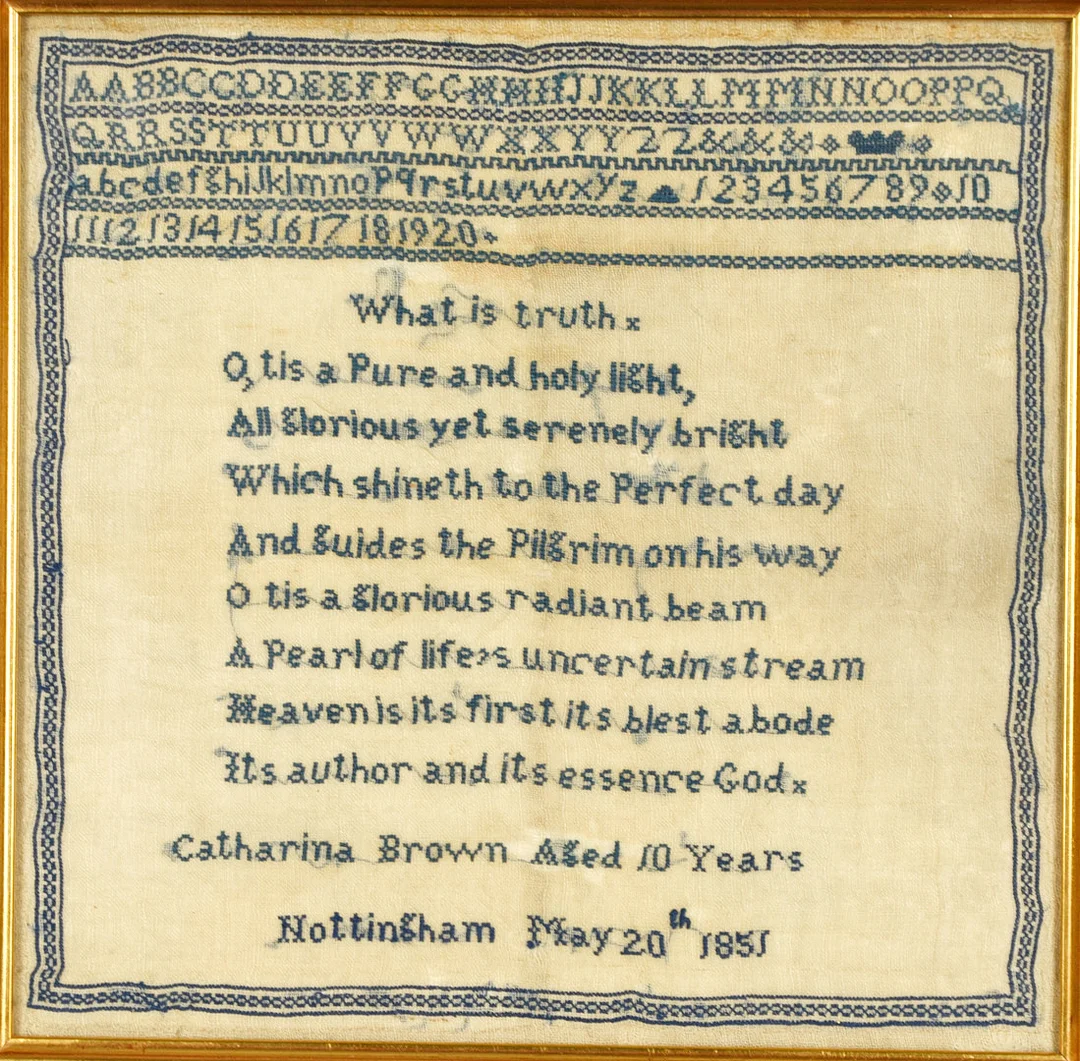 AABBCCDDEEFFGGHHIIJJKKLLMMNNOOPPQ
QRRSSTTUUVVWWXXYYZZ&&&
abcdefghijklmnopqrstuvwxyz 123456789 10
11 12 13 14 15 16 17 18 19 20
What is truth x
O, tis a Pure and holy light,
All glorious yet serenely bright
Which shineth to the Perfect day
And guides the Pilgrim on his way
O tis a glorious radiant beam
A Pearl of life's uncertain stream
Heaven is its first its blest abode
Its author and its essence God x
Catharina Brown Aged 10 Years
Nottingham May 20th 1851